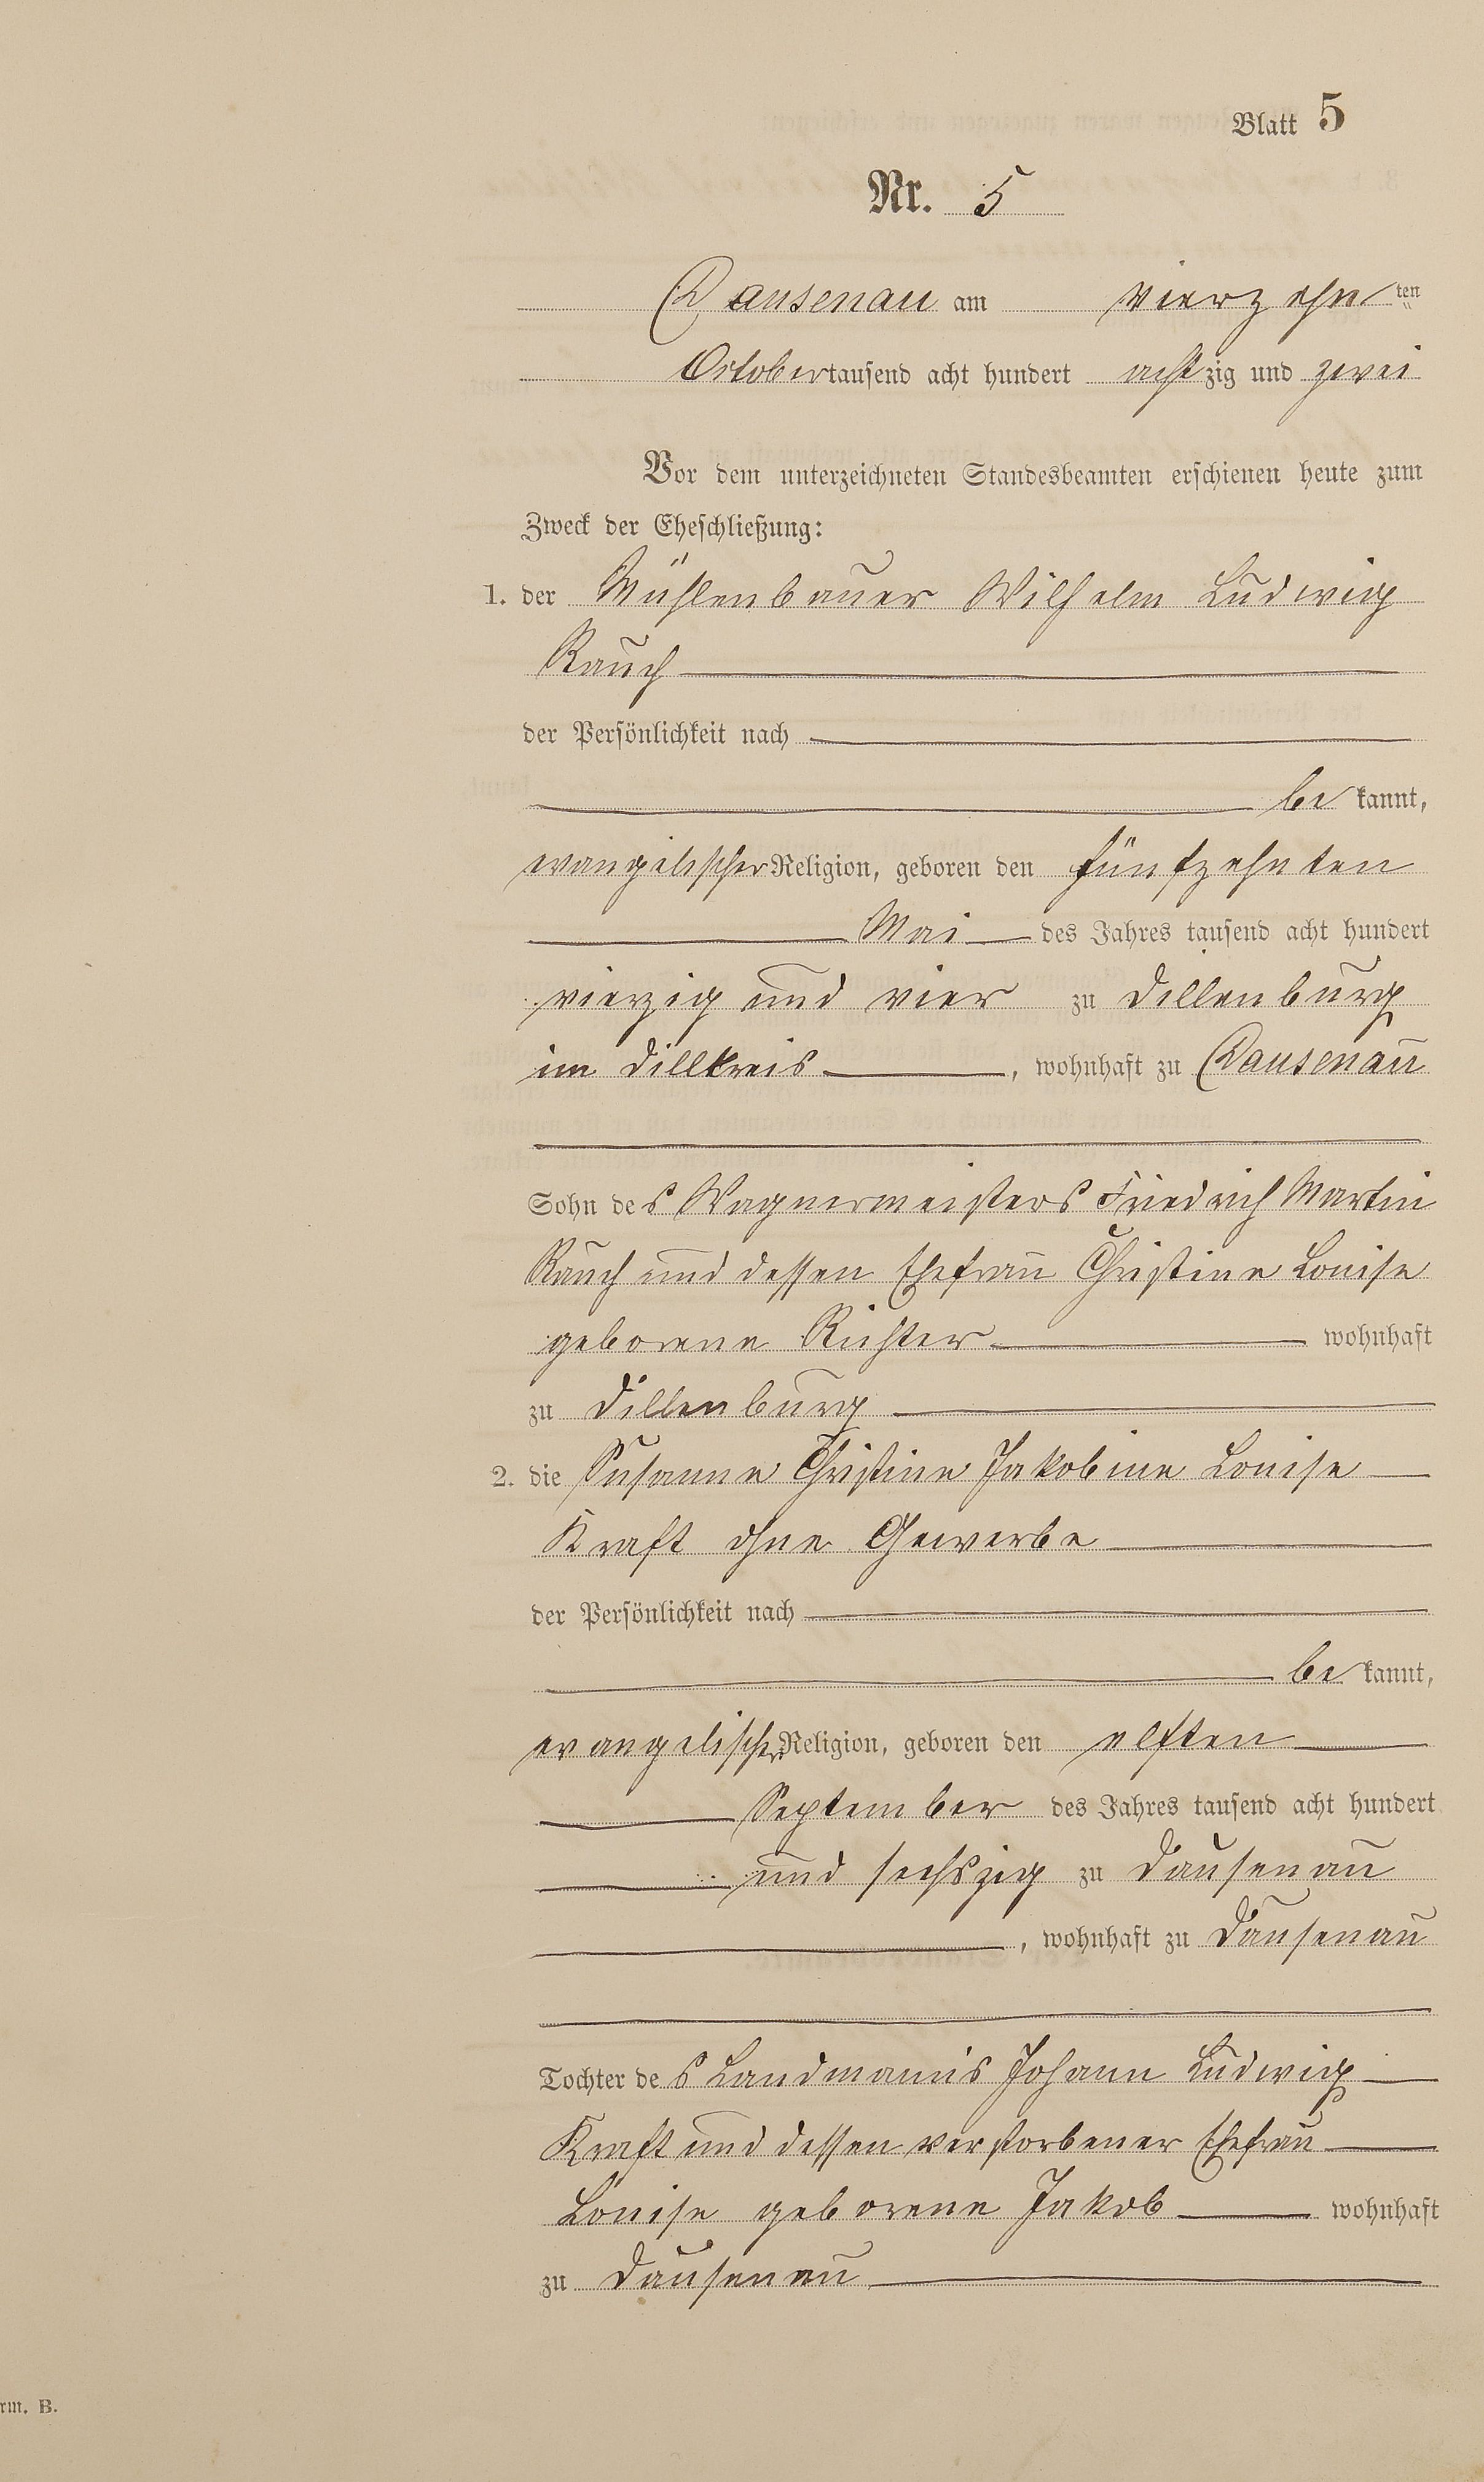 Blatt 5
Nr. 5
Dausenau am vierzehn ten
October tausend acht hundert achtzig und zwei
Vor dem unterzeichneten Standesbeamten erschienen heute zum
Zweck der Eheschließung:
1. der Mühlenbauer Wilhelm Ludwig
Rauch
der Persönlichkeit nach
be kannt,
evangelischer Religion, geboren den fünfzehnten
Mai des Jahres tausend acht hundert
vierzig und vier zu Dillenburg
im Dillkreis, wohnhaft zu Dausenau
Sohn des Wagnermeisters Friedrich Martin
Rauch und dessen Ehefrau Christine Louise
geborene Richter wohnhaft
zu Dillenburg
2. die Susanne Christine Jakobine Louise
Kraft ohne Gewerbe
der Persönlichkeit nach
be kannt,
evangelischer Religion, geboren den elften
September des Jahres tausend acht hundert
und sechszig zu Dausenau
, wohnhaft zu Dausenau
Tochter des Landmanns Johann Ludwig
Kraft und dessen verstorbener Ehefrau
Louise geborene Jakob wohnhaft
zu Dausenau
rm. B.